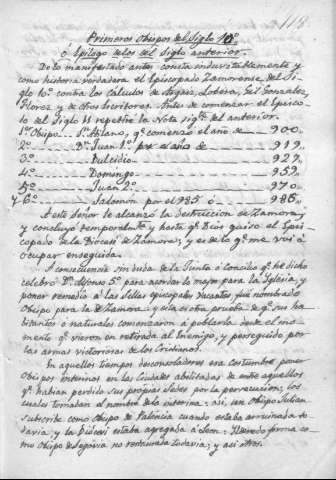 118.
Primeros Obispos del Siglo 10º
ó Epílogo de los del Siglo anterior.
De lo manifestado antes consta indubitablemente y
como historia verdadera el Episcopado Zamorense del Si-
glo 10º contra los Calculos de Argaiz, Lobera, Gil Gonzalez,
Florez y de otros Escritores. Antes de comenzar el Episco-
do del Siglo 11 repetiré la Nota sigte. del anterior.
1º Obispo Sn. Atilano, qe. comenzó el año de 900.
2º Dn. Juan 1º por el año de 919.
3º Dulcidio 929.
4º Domingo 959.
5º Juan 2º 970.
y 6º Salomón por el 985 ó 986.
A este Señor le alcanzó la destruccion de Zamora,
y concluyó temporalmte. y hasta qe. Dios quiso el Epis-
copado de la Diocesi de Zamora; y es de lo qe. me voi á
ocupar enseguida.
A consecuencia sin duda de la Junta ó Concilio qe. he dicho
celebró Dn. Alfonso 5º para acordar lo mejor para la Iglesia, y
poner remedio a las Sillas episcopales vacantes fué nombrado
Obispo para la de Zamora. y esta es otra prueba de qe. sus ha-
bitantes ó naturales comenzaron á poblarla desde el mo-
mento qe. vieron en retirada al Enemigo, y perseguido por
las armas victoriosas de los Cristianos.
En aquellos tiempos desconsoladores era costumbre poner
Obispos interinos en las Ciudades abilitadas de entre aquellos
qe. habian perdido sus propias Sedes por la persecucion; los
cuales tomaban el nombre de la interina: asi, un Obispo Julian
subscribe como Obispo de Palencia cuando estaba arruinada to-
davia; y la Diocesi estaba agregada á Leon. Ilderedo firma co-
mo Obispo de Segovia no restaurada todavia; y asi otros.